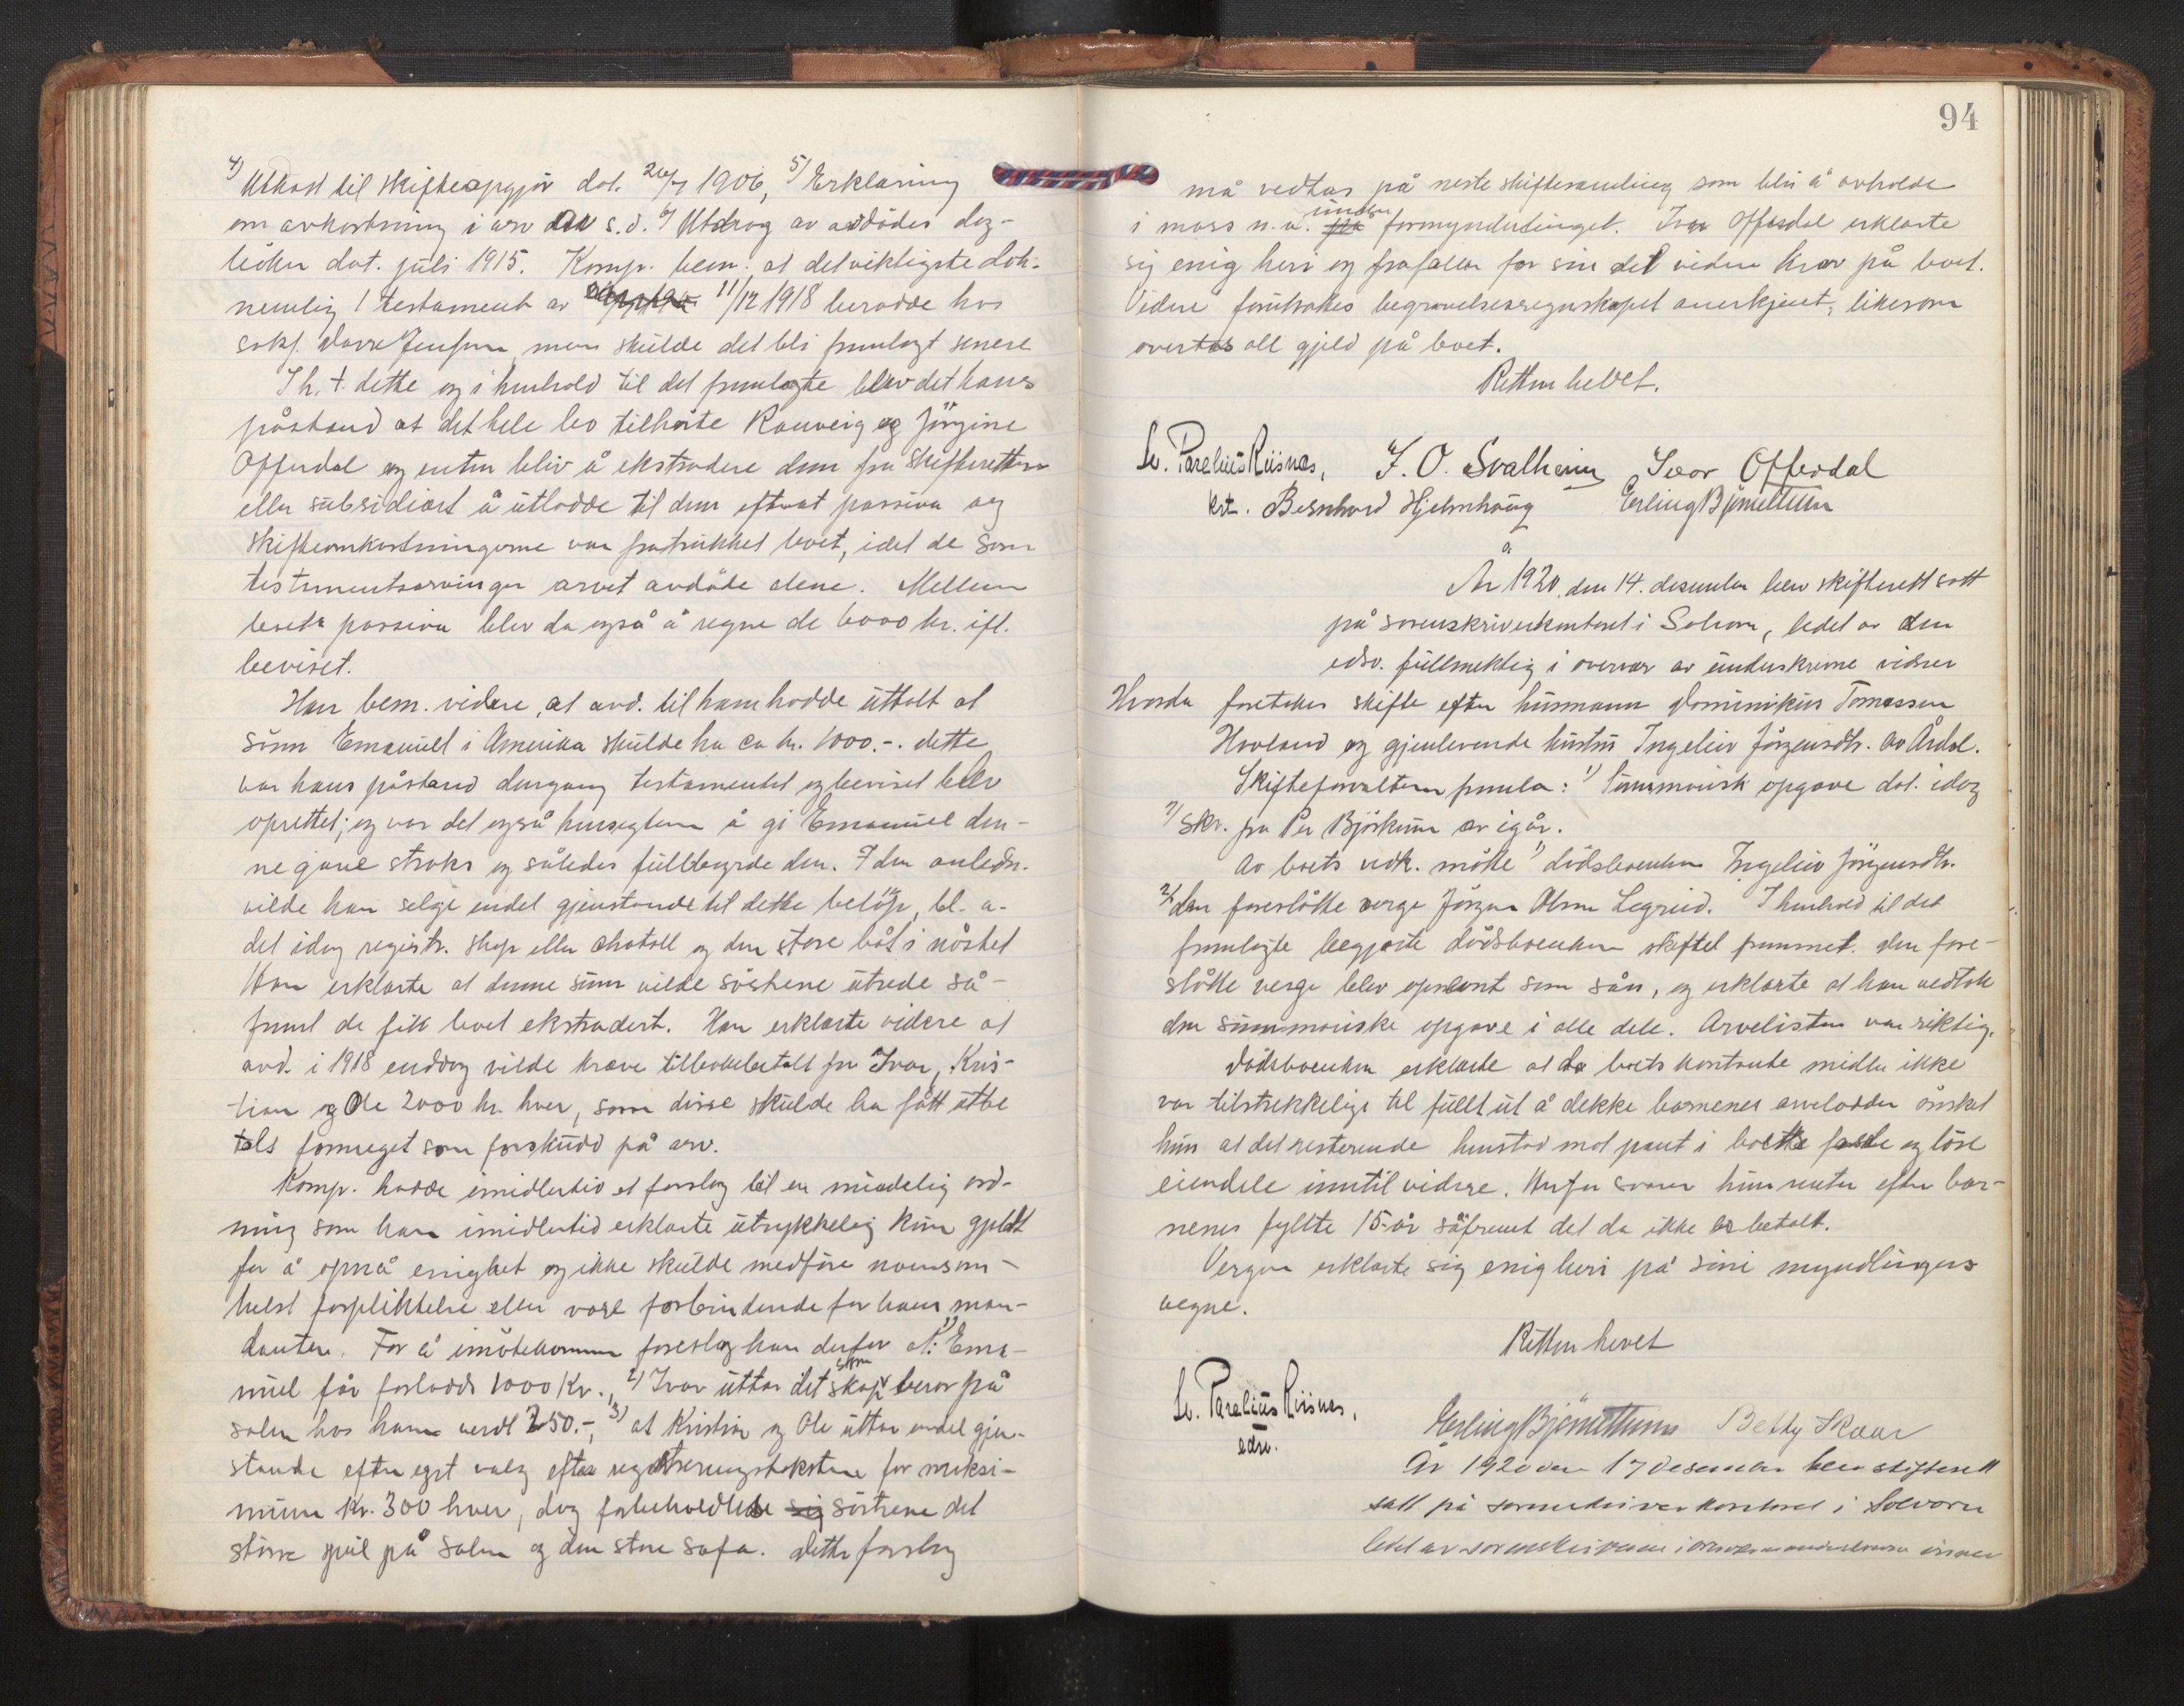 4) Utkast til skifteopgjör dat. 26/7 1906, 5) Erklæring
om avkortning i arv av s.d. 6) Utdrag av avdödes dag-
böker dat. juli 1915. Komp. bem. at det viktigste dok.
nemlig 1 testament av 11/12 1918 berodde hos
sakf. men skulde det bli fremlagt senere
I h. t. dette og i henhold til det fremlagte blev det hans
påstand at det hele bo tilhörte Rannveig og Jörgine
Offerdal og enten blir å ekstradere dem fra skifteretten
eller subsidiært å utlodde til dem efterat passiva og
skifteomkostningerne var fratrukket boet, idet de som
testamentsarvinger arvet avdöde alene. Mellem
boets passiva blev da også å regne de 6000 kr. ifl.
beviset.
Han bem. videre, at avd. til ham hadde uttalt at
sönn Emanuel i Amerika skulde ha ca kr. 1000.-. dette
var hans påstand dengang testamentet og beviset blev
oprettet; og var det også hensigten å gi Emanuel den-
ne gave straks og således fullbyrde den. I den anledn.
vilde han selge endel gjenstande til dette belöp, bl. a.
det idag registr. skap eller chatoll og den store båt i nöstet
Han erklærte at denne sum vilde söstrene utrede så-
fremt de fikk boet ekstradert. Han erklærte videre at
avd. i 1918 enddog vilde kræve tilbakebetalt fra Ivar, Kris-
tian og Ole 2000 kr. hver, som disse skulde ha fått utbe
talt formeget som forskudd på arv.
Komp. hadde imidlertid et forslag til en mindelig ord-
ning som han imidlertid erklærte utrykkelig kun gjaldt
for å opnå enighet og ikke skulde medföre noensom-
helst forpliktelse eller være forbindende for hans man-
danter. For å imötekomme foreslog han derfor at: 1) Ema-
nuel får forlodds 1000 kr., 2) Ivar uttar det skap som beror på
salen hos ham verdt 250.-, 3) at Kristian og Ole uttar endel gjen-
stande efter eget valg efter registreringstaksten for maksi-
mum kr. 300 hver, dog forbeholdt sig söstrene det
störe speil på salen og den store sofa. Dette forslag
94
må vedtas på neste skiftesamling som blir å avholde
i mars n. å. på under formyndertinget. Ivar Offerdal erklærte
sig enig heri og frafaller for sin del videre krav på boet.
Videre forutsattes begravelsesregnskapet anerkjent, likesom
overtas all gjeld på boet.
Retten hevet.
Sv. Parelius Riisnæs, J. O. Svalheim Ivar Offerdal
kst. Bernhard Hjelmhaug Erling Bjömethun
År 1920. den 14. desember blev skifterett satt
på sorenskriverkontoret i Solvorn, ledet av den
edsv. fullmektig i overvær av underskrevne vidner
Hvorda foretokes skifte efter husmann Dominikus Tomassen
Hovland og gjenlevende hustru Ingeleiv Jörgensdtr. av Årdal.
Skifteforvalteren fremla: 1) Summarisk opgave dat. idag
2) Skr. fra Per Björkum av igår.
Av boets vedk. mötte 1) dödsboenken Ingeleiv Jörgensdtr.
2) den foreslåtte verge Jörgen Olsen Lægreid. I henhold til det
fremlagte begjærte dödsboenken skiftet fremmet. Den fore-
slåtte verge blev opnevnt som sån, og erklærte at han vedtok
den summariske opgave i alle dele. Arvelisten var riktig.
Dödsboenken erklærte at da boets kontante midler ikke
var tilstrekkelige til fullt ut å dekke barnenes arvelodder önsket
hun at det resterende henstod mot pant i boets faste og löse
eiendele inntil videre. Herfor svarer hun renter efter bar-
nenes fyllte 15-år såfremt det da ikke er betalt.
Vergen erklærte sig enig heri på sine myndlingers
vegne.
Retten hevet
Sv. Parelius Riisnæs,
edsv.
Erling Bjömethun Betty Skaar
År 1920 den 17 desember blev skifterett
satt på sorenskriverkontoret i Solvorn
ledet av sorenskriveren i overvær av underskrevne vidner